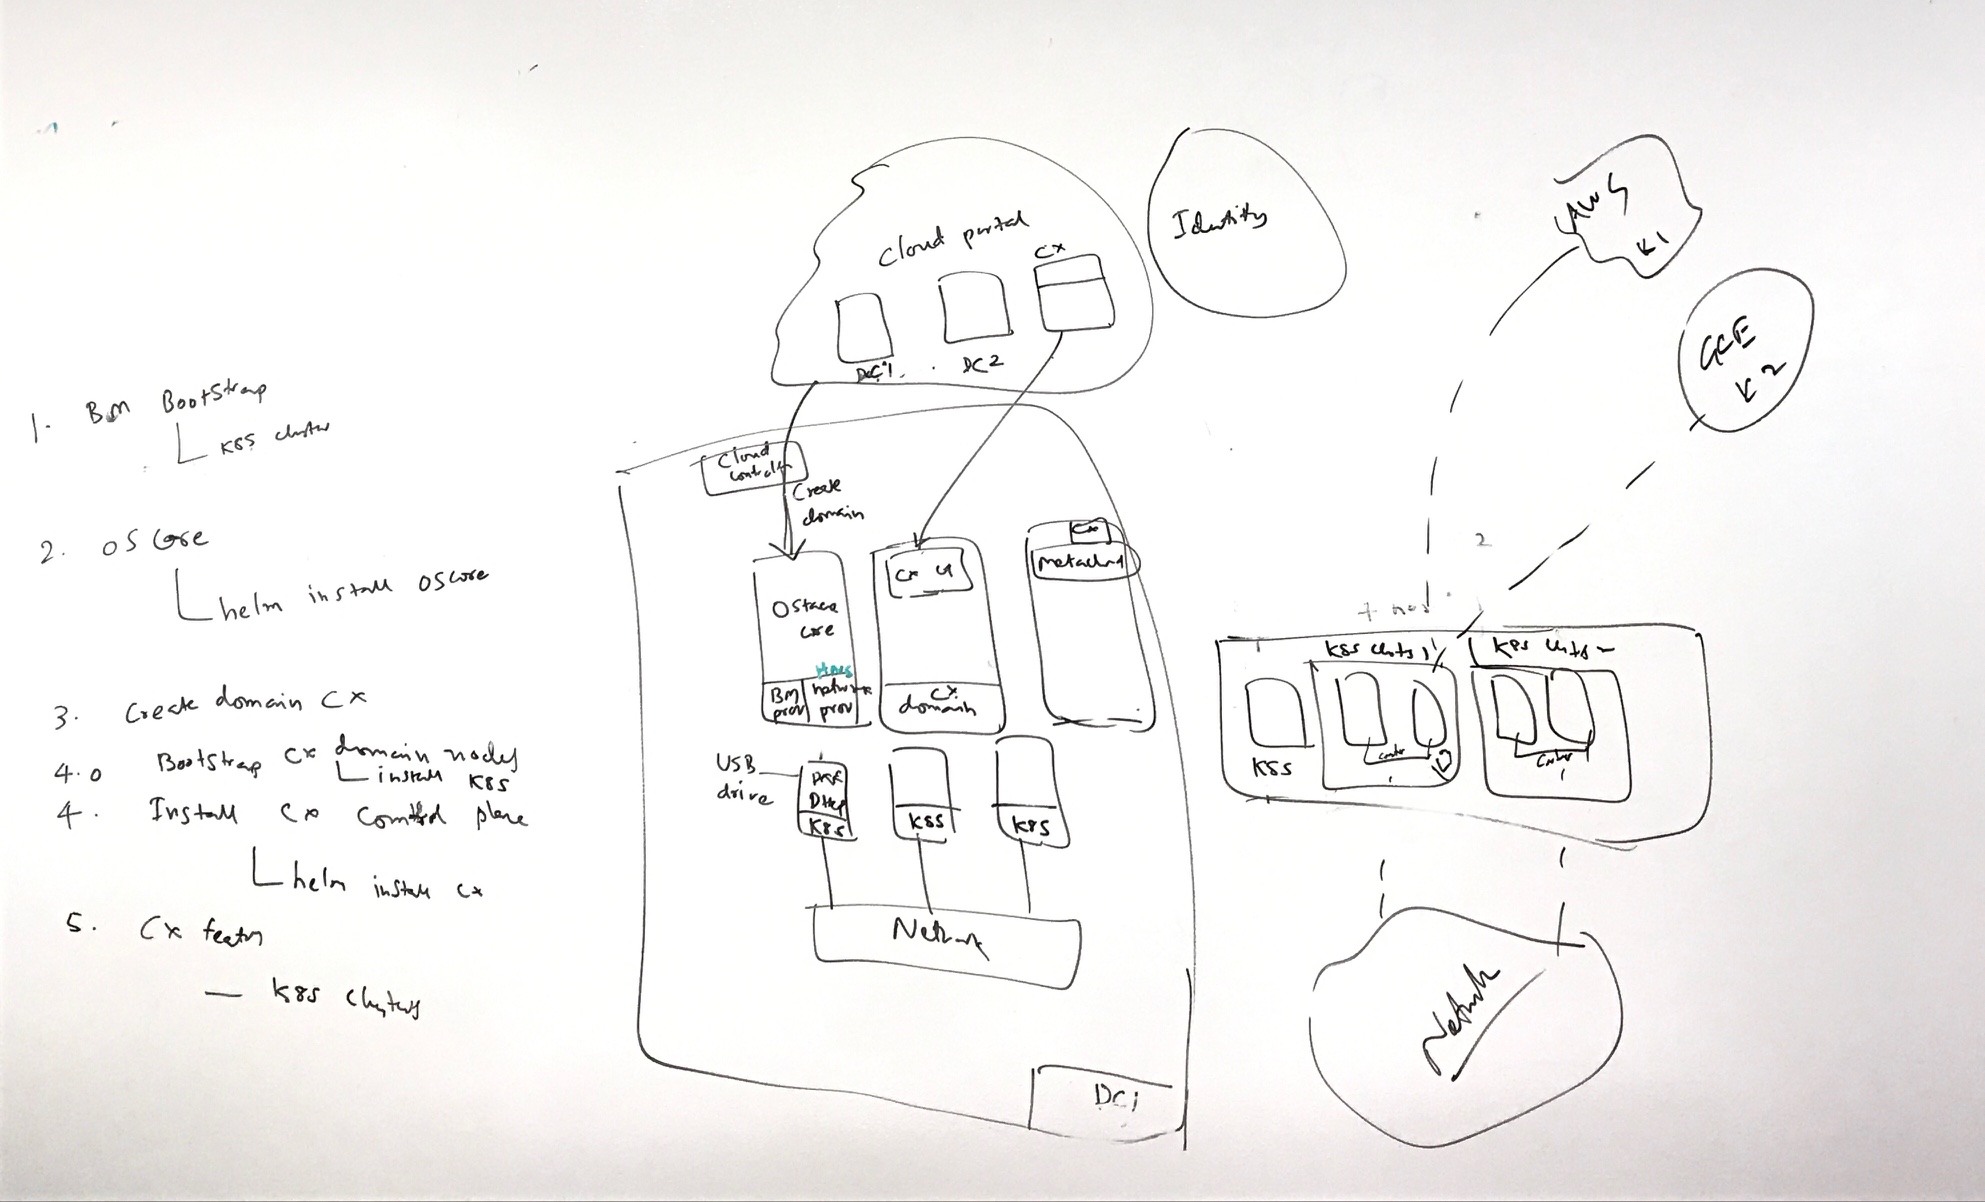 1. BM Bootstrap
K8S cluster
2. OS Core
helm install OScore
3. Create domain Cx
4.0 Bootstrap Cx domain nodes
install K8S
4. Install Cx control plane
helm install Cx
5.
Cx
— K8S clusters
Cloud portal
Cx
DC1
DC2
Identity
AWS
K1
GCE
K2
Cloud
Create
domain
Core
BM
prov
network
prov
Cx UI
Cx
domain
Cx
USB
drive
DHCP
K8S
K8S
K8S
Network
DC1
2
K8S
K8S
K8S
Network